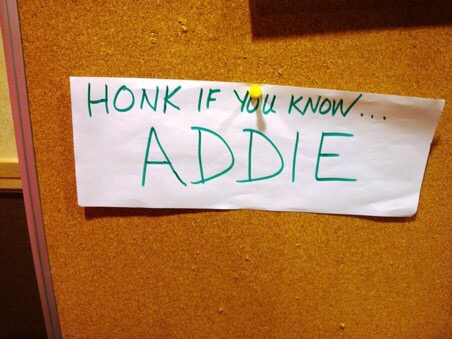 HONK IF YOU KNOW...
ADDIE